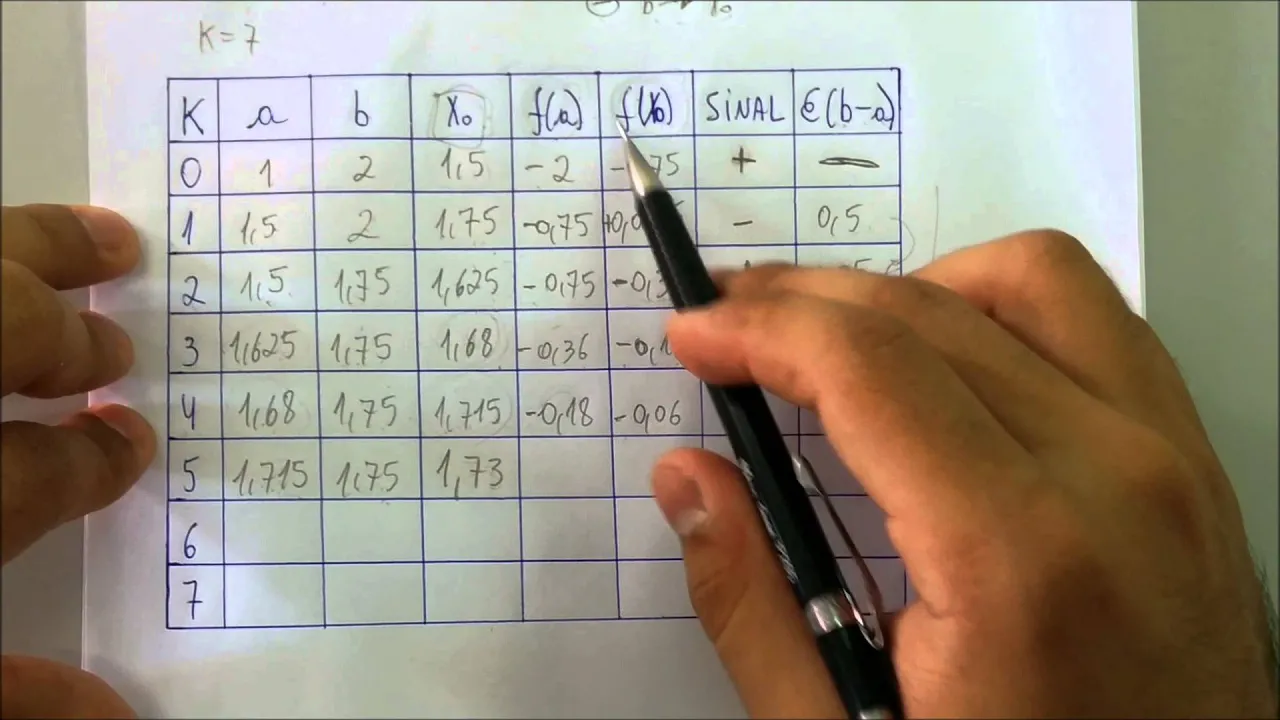 K=7
K a b X₀ f(a) f(X₀) SINAL €(b-a)
0 1 2 1,5 -2 + —
1 1,5 2 1,75 -0,75 - 0,5
2 1,5 1,75 1,625 -0,75
3 1,625 1,75 1,68 -0,36
4 1,68 1,75 1,715 -0,18 -0,06
5 1,715 1,75 1,73
6
7